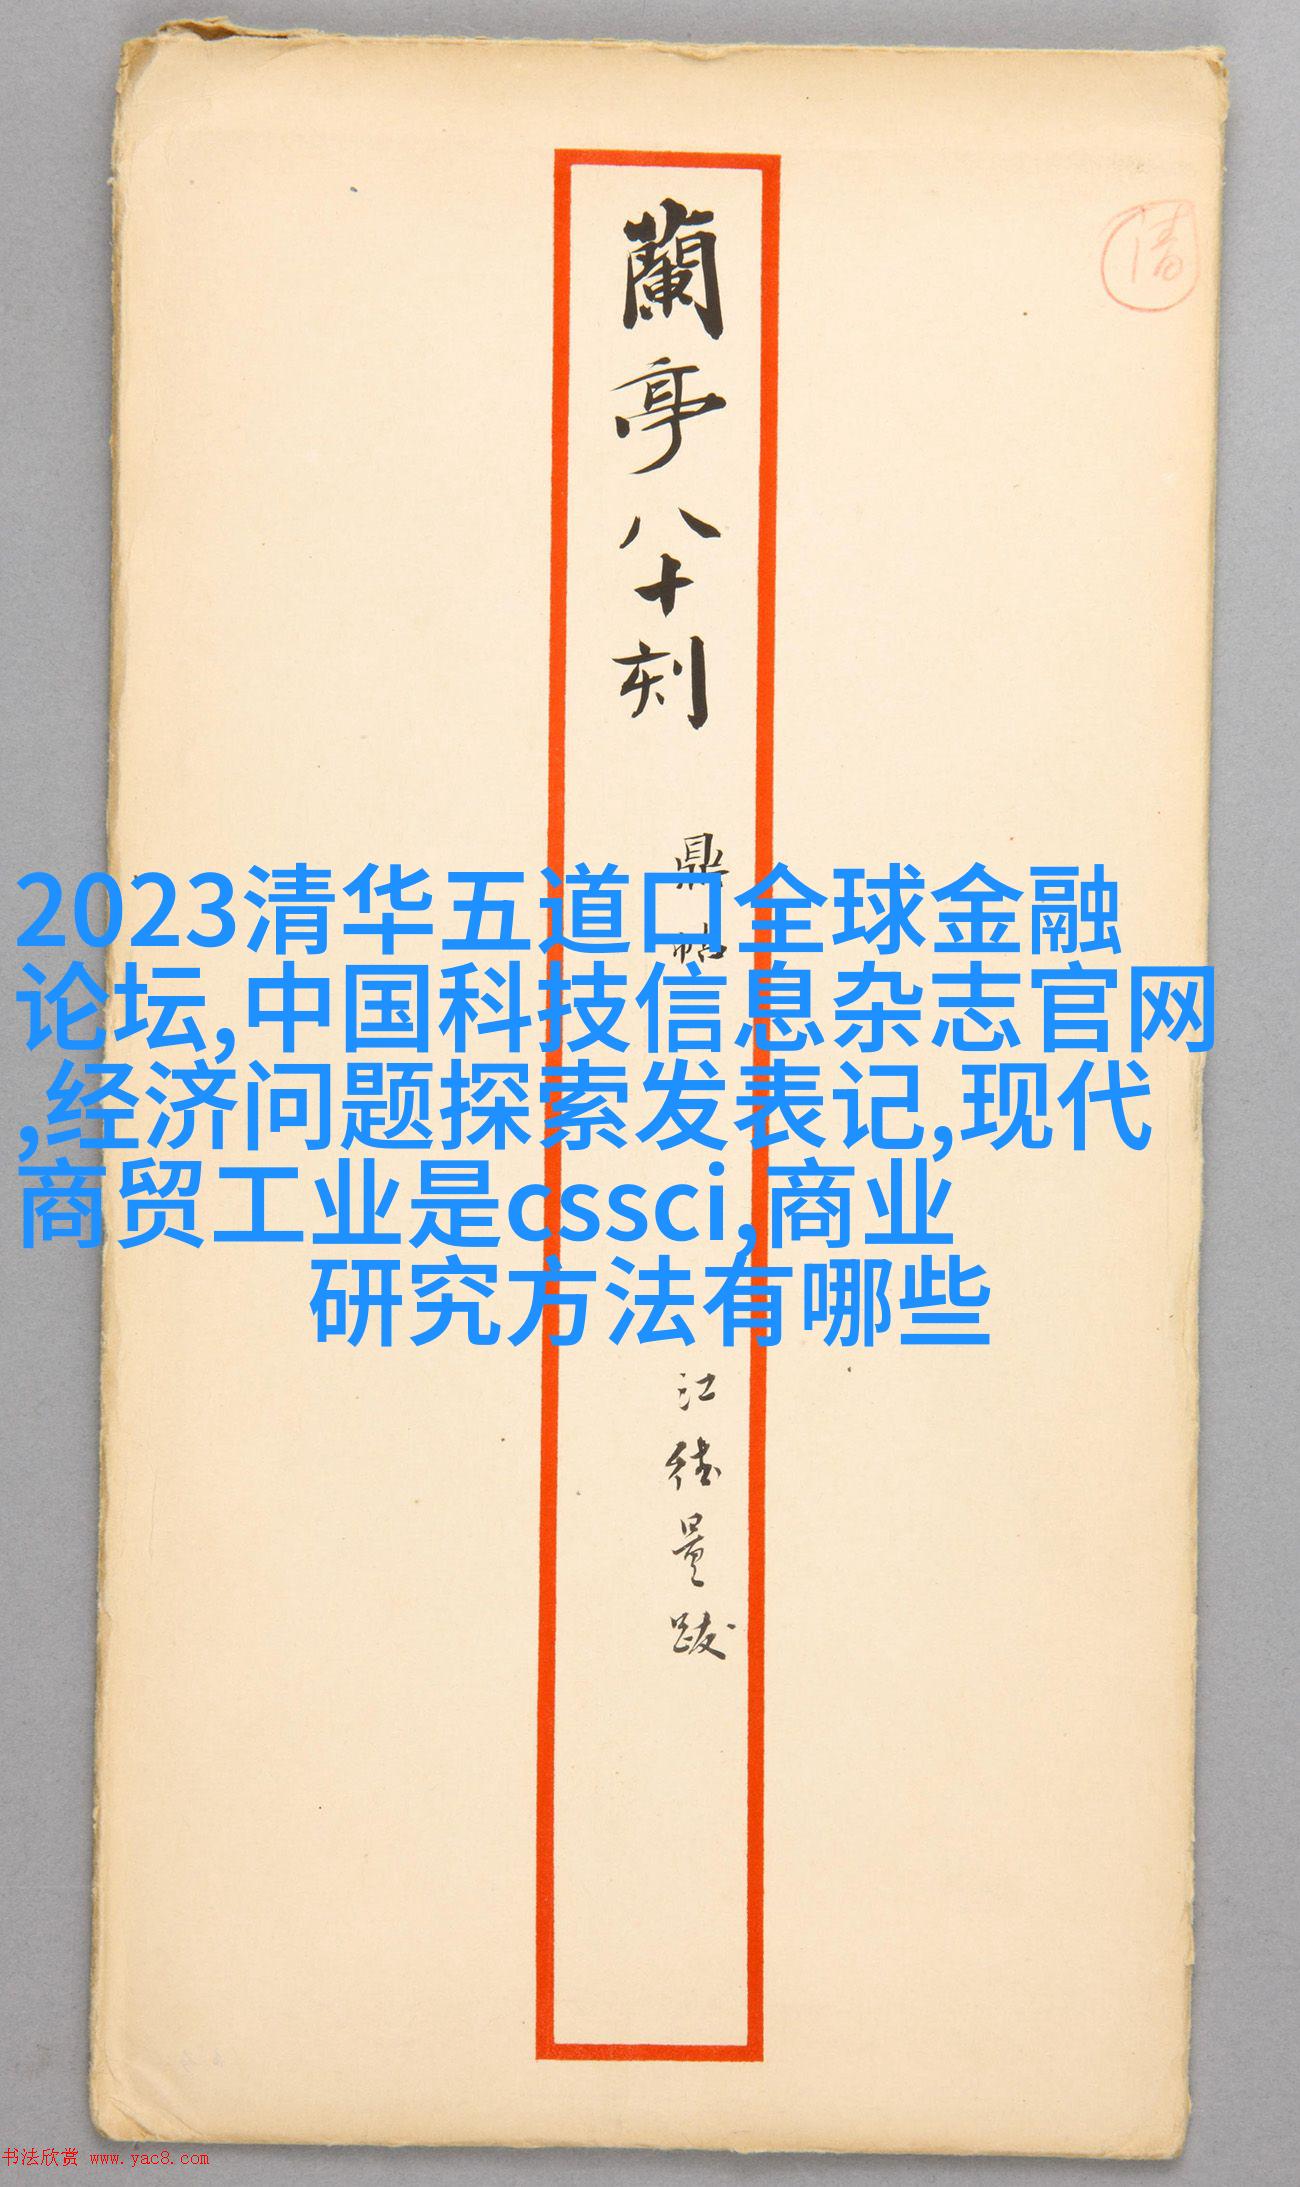 蘭亭八十刻
鼎帖
江德量跋
2023清华五道口全球金融
论坛,中国科技信息杂志官网
,经济问题探索发表记,现代
商贸工业是cssci,商业
研究方法有哪些
书法欣赏 www.yac8.com